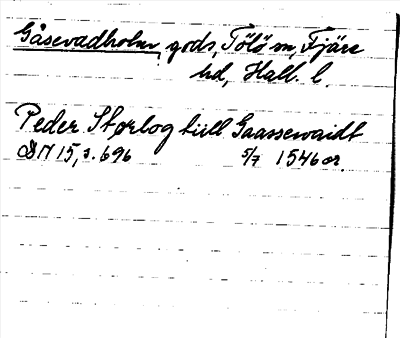 Gåsevadholm, gods, Tölö sn, Fjäre
hd, Hall. l.
Peder Størlog tiill Gaassewaidt
DN 15, s. 696 5/7 1546 or.